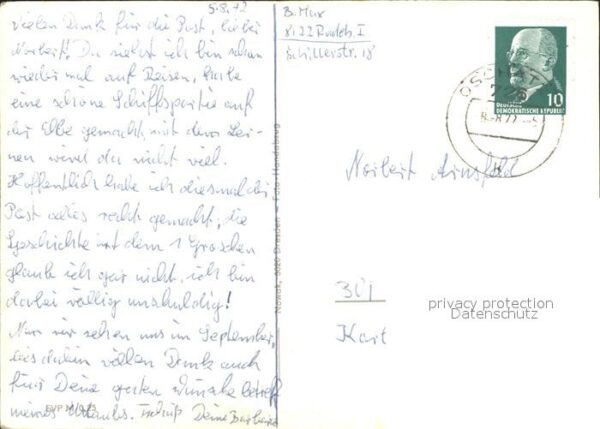 5.8.72
Vielen Dank für die Post, lieber
Norbert! Du siehst ich bin schon
wieder mal auf Reisen, habe
eine schöne Schiffspartie auf
der Elbe gemacht, mit dem
nen wird da nicht viel.
Hoffentlich habe ich diesmal der
Post alles recht gemacht; die
Geschichte mit dem 1 Groschen
glaube ich gar nicht, ich bin
dabei völlig unschuldig!
Nun wir sehen uns im September,
bis dahin vielen Dank auch
für Deine guten Wünsche betreff
meines Urlaubs. Tschüß Deine Barbara
B. Max
Schillerstr. 18
10
DEUTSCHE
DEMOKRATISCHE REPUBLIK
OSCHATZ
Norbert Arnsfeld
Nowak, 8020 Dresden — Foto Handsburg
privacy protection
Datenschutz